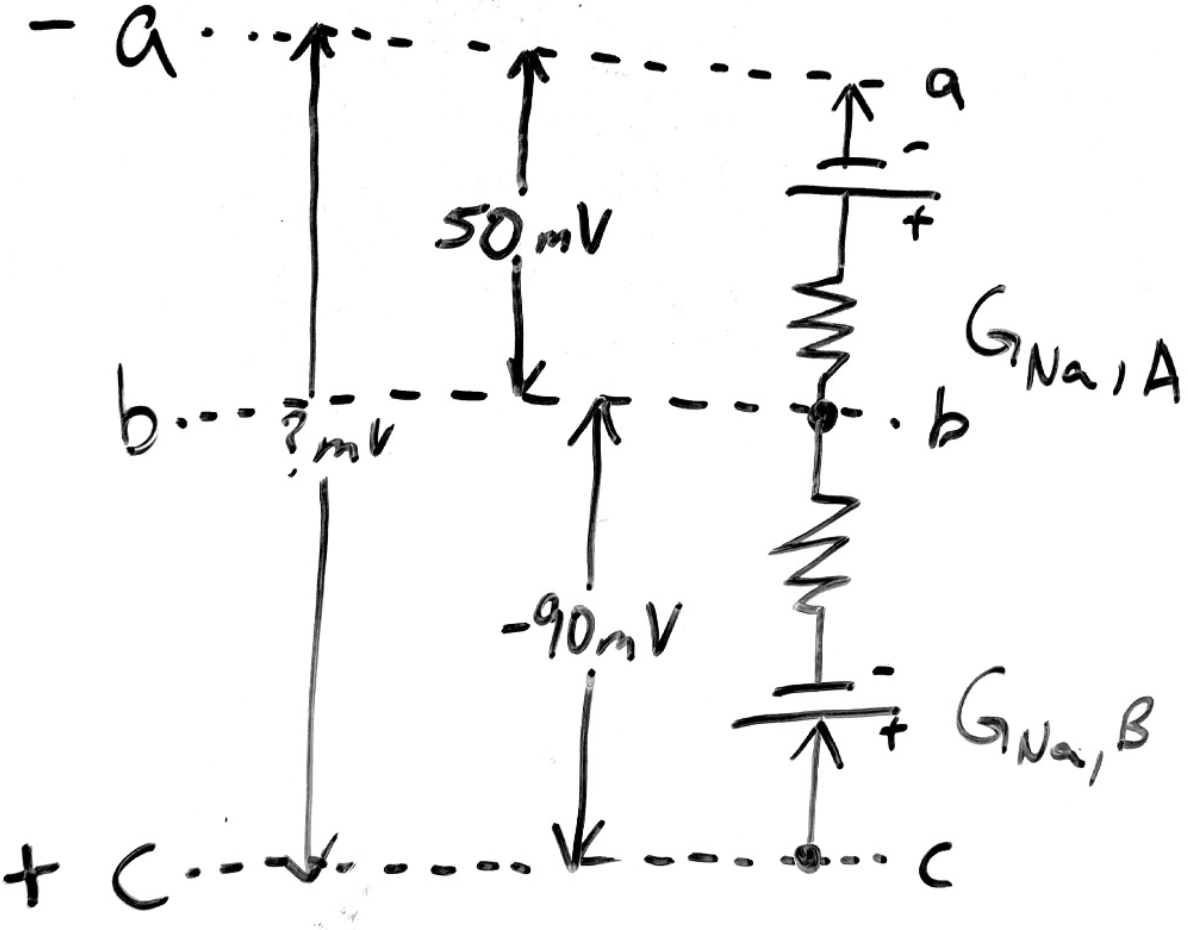 - a
a
-
+
50 mV
G Na, A
b
? mV
b
-90 mV
-
+
G Na, B
+ c
c